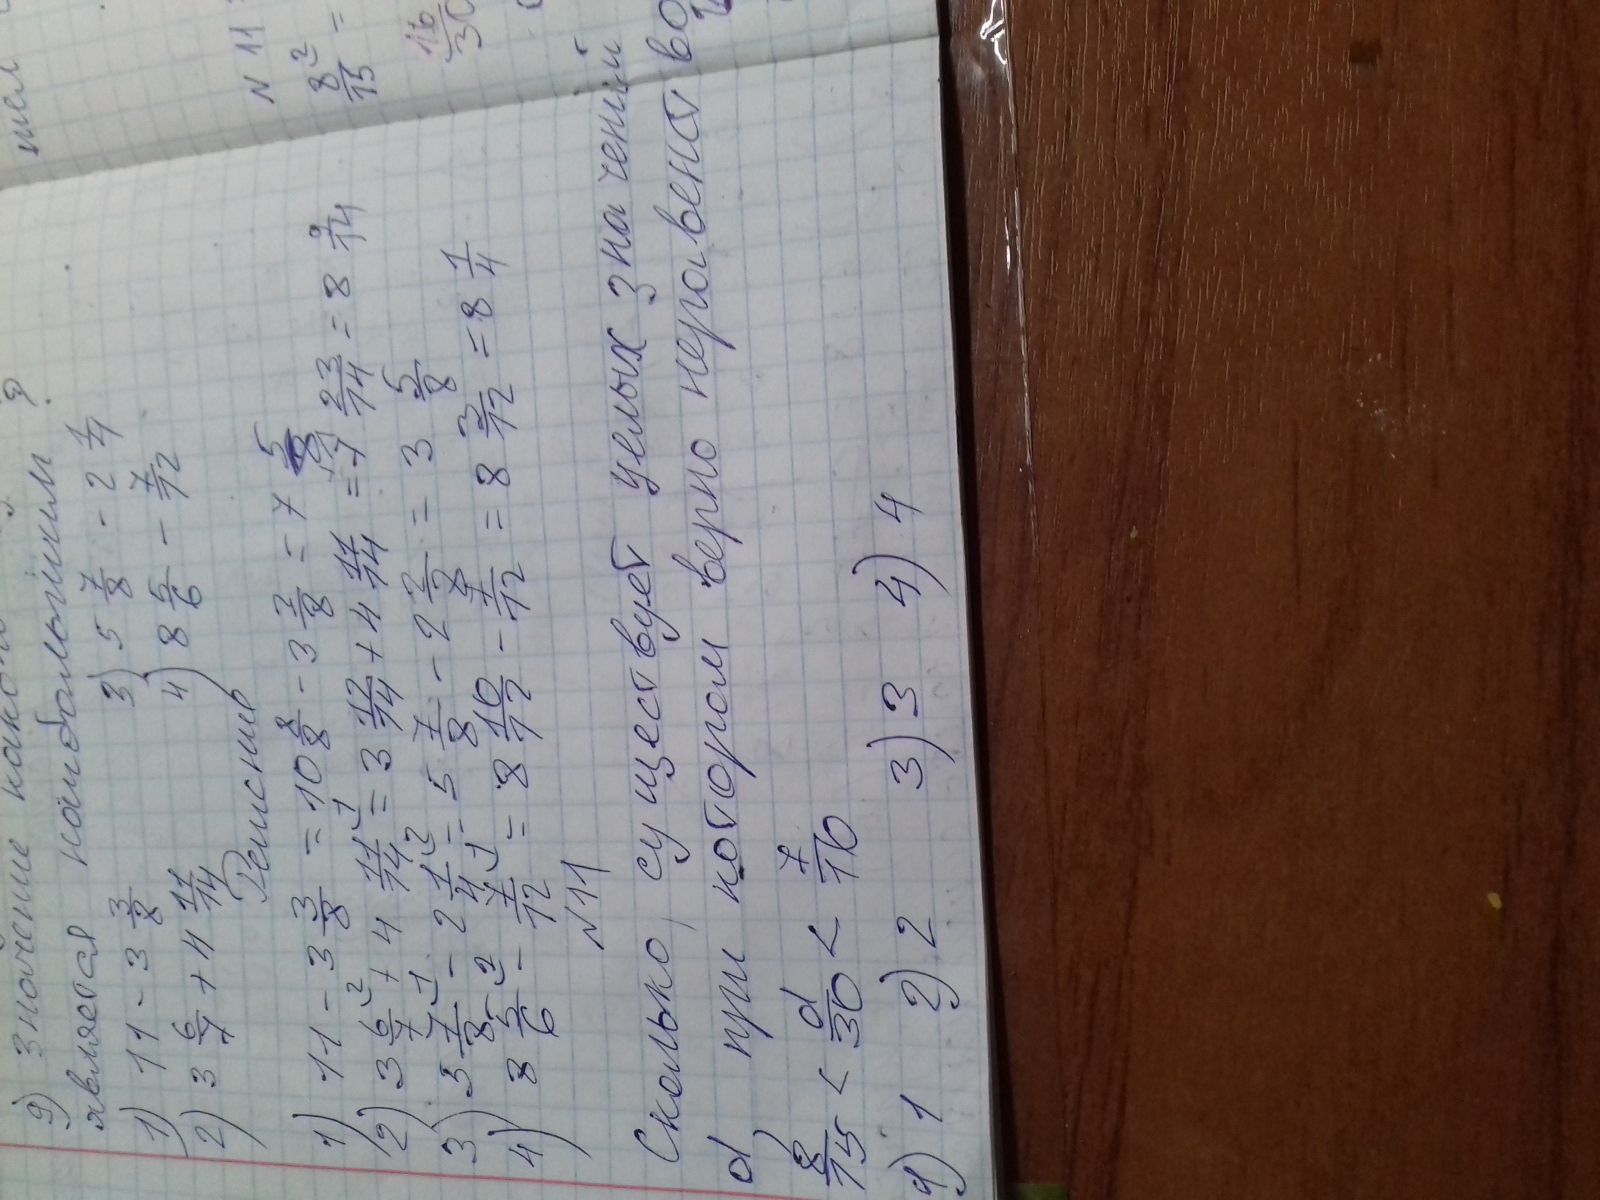 9) Значение какого
является наибольшим ?
1) 11 - 3 3/8 3) 5 7/8 - 2 1/4
2) 3 6/7 + 4 11/14 4) 8 5/6 - 7/12
1) 11 - 3 3/8 = 10 8/8 - 3 3/8 = 7 5/8
2) 3 6/7 + 4 11/14 = 3 12/14 + 4 11/14 = 7 23/14 = 8 9/14
3) 5 7/8 - 2 1/4 = 5 7/8 - 2 2/8 = 3 5/8
4) 8 5/6 - 7/12 = 8 10/12 - 7/12 = 8 3/12 = 8 1/4
N11
Сколько существует целых значений
d при котором верно неравенст во
8/15 < d/30 < 7/10
1) 1 2) 2 3) 3 4) 4
чисел
N 11
8/15 =
16/30